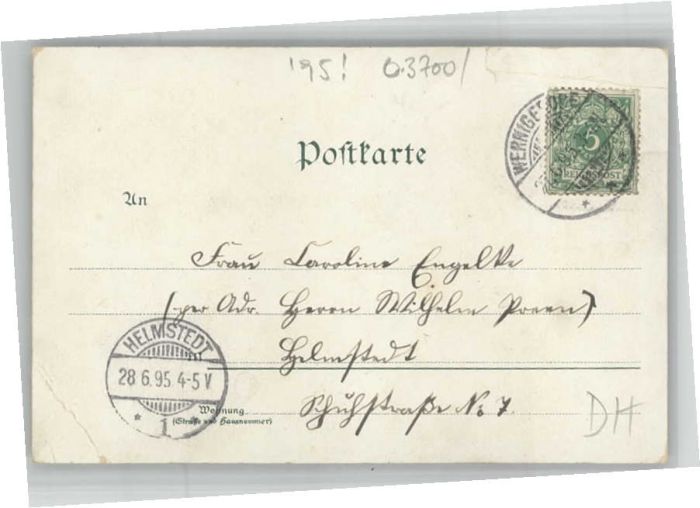 '95! 0.3700/
WERNIGERODE
5
REICHSPOST
Postkarte
An
Frau Caroline Engelke
(per Adr. Herrn Wilhelm
Helmstedt
HELMSTEDT
28.6.95.4-5 V
* 1 *
Wohnung
(Straße und Hausnummer)
Schuhstraße No 7.
DH